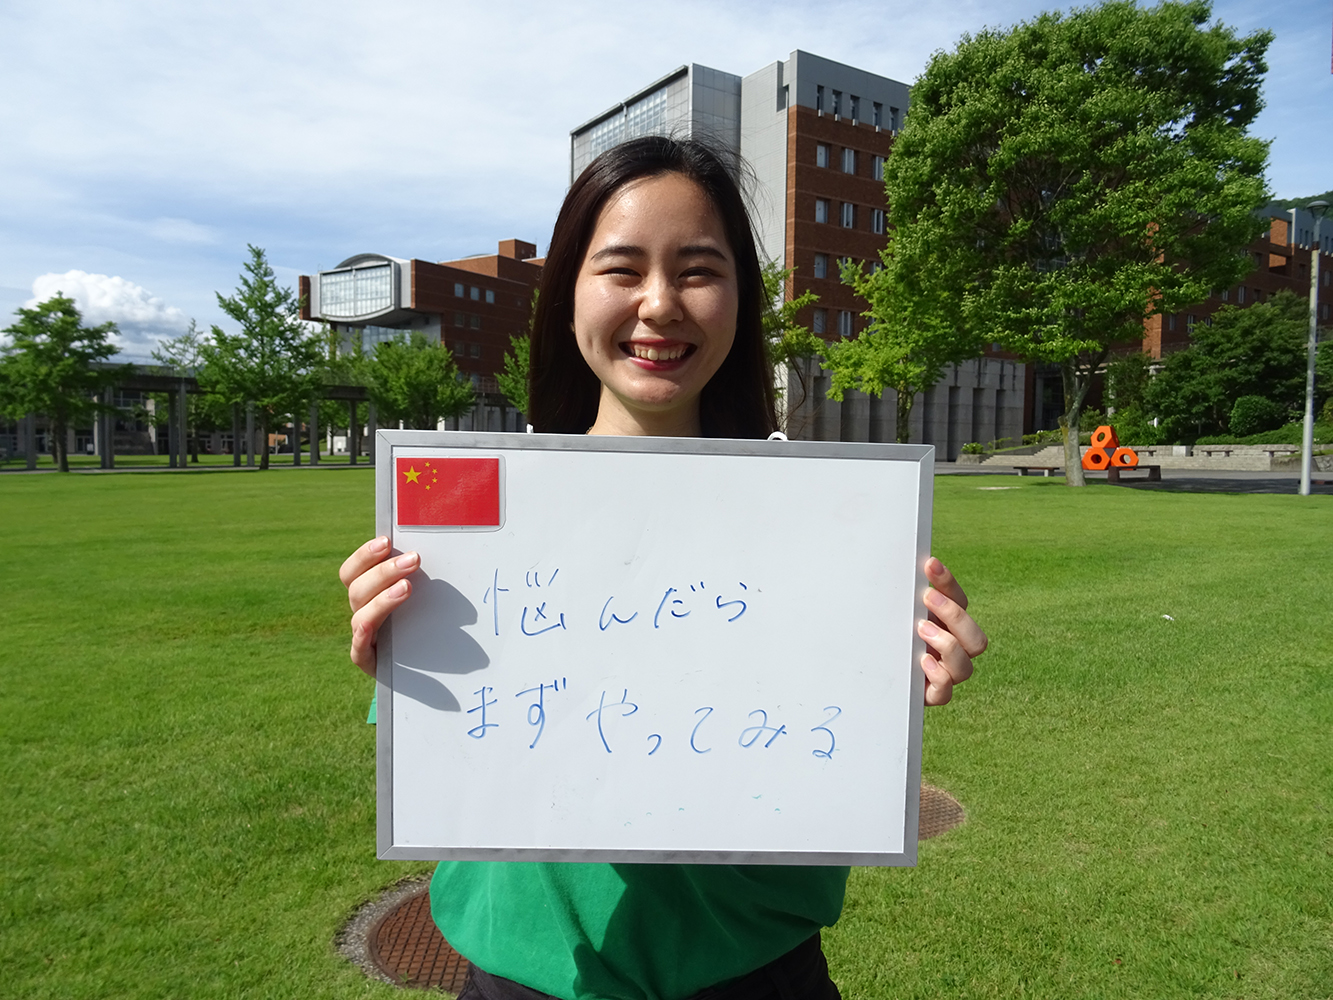 悩んだら
まずやってみる